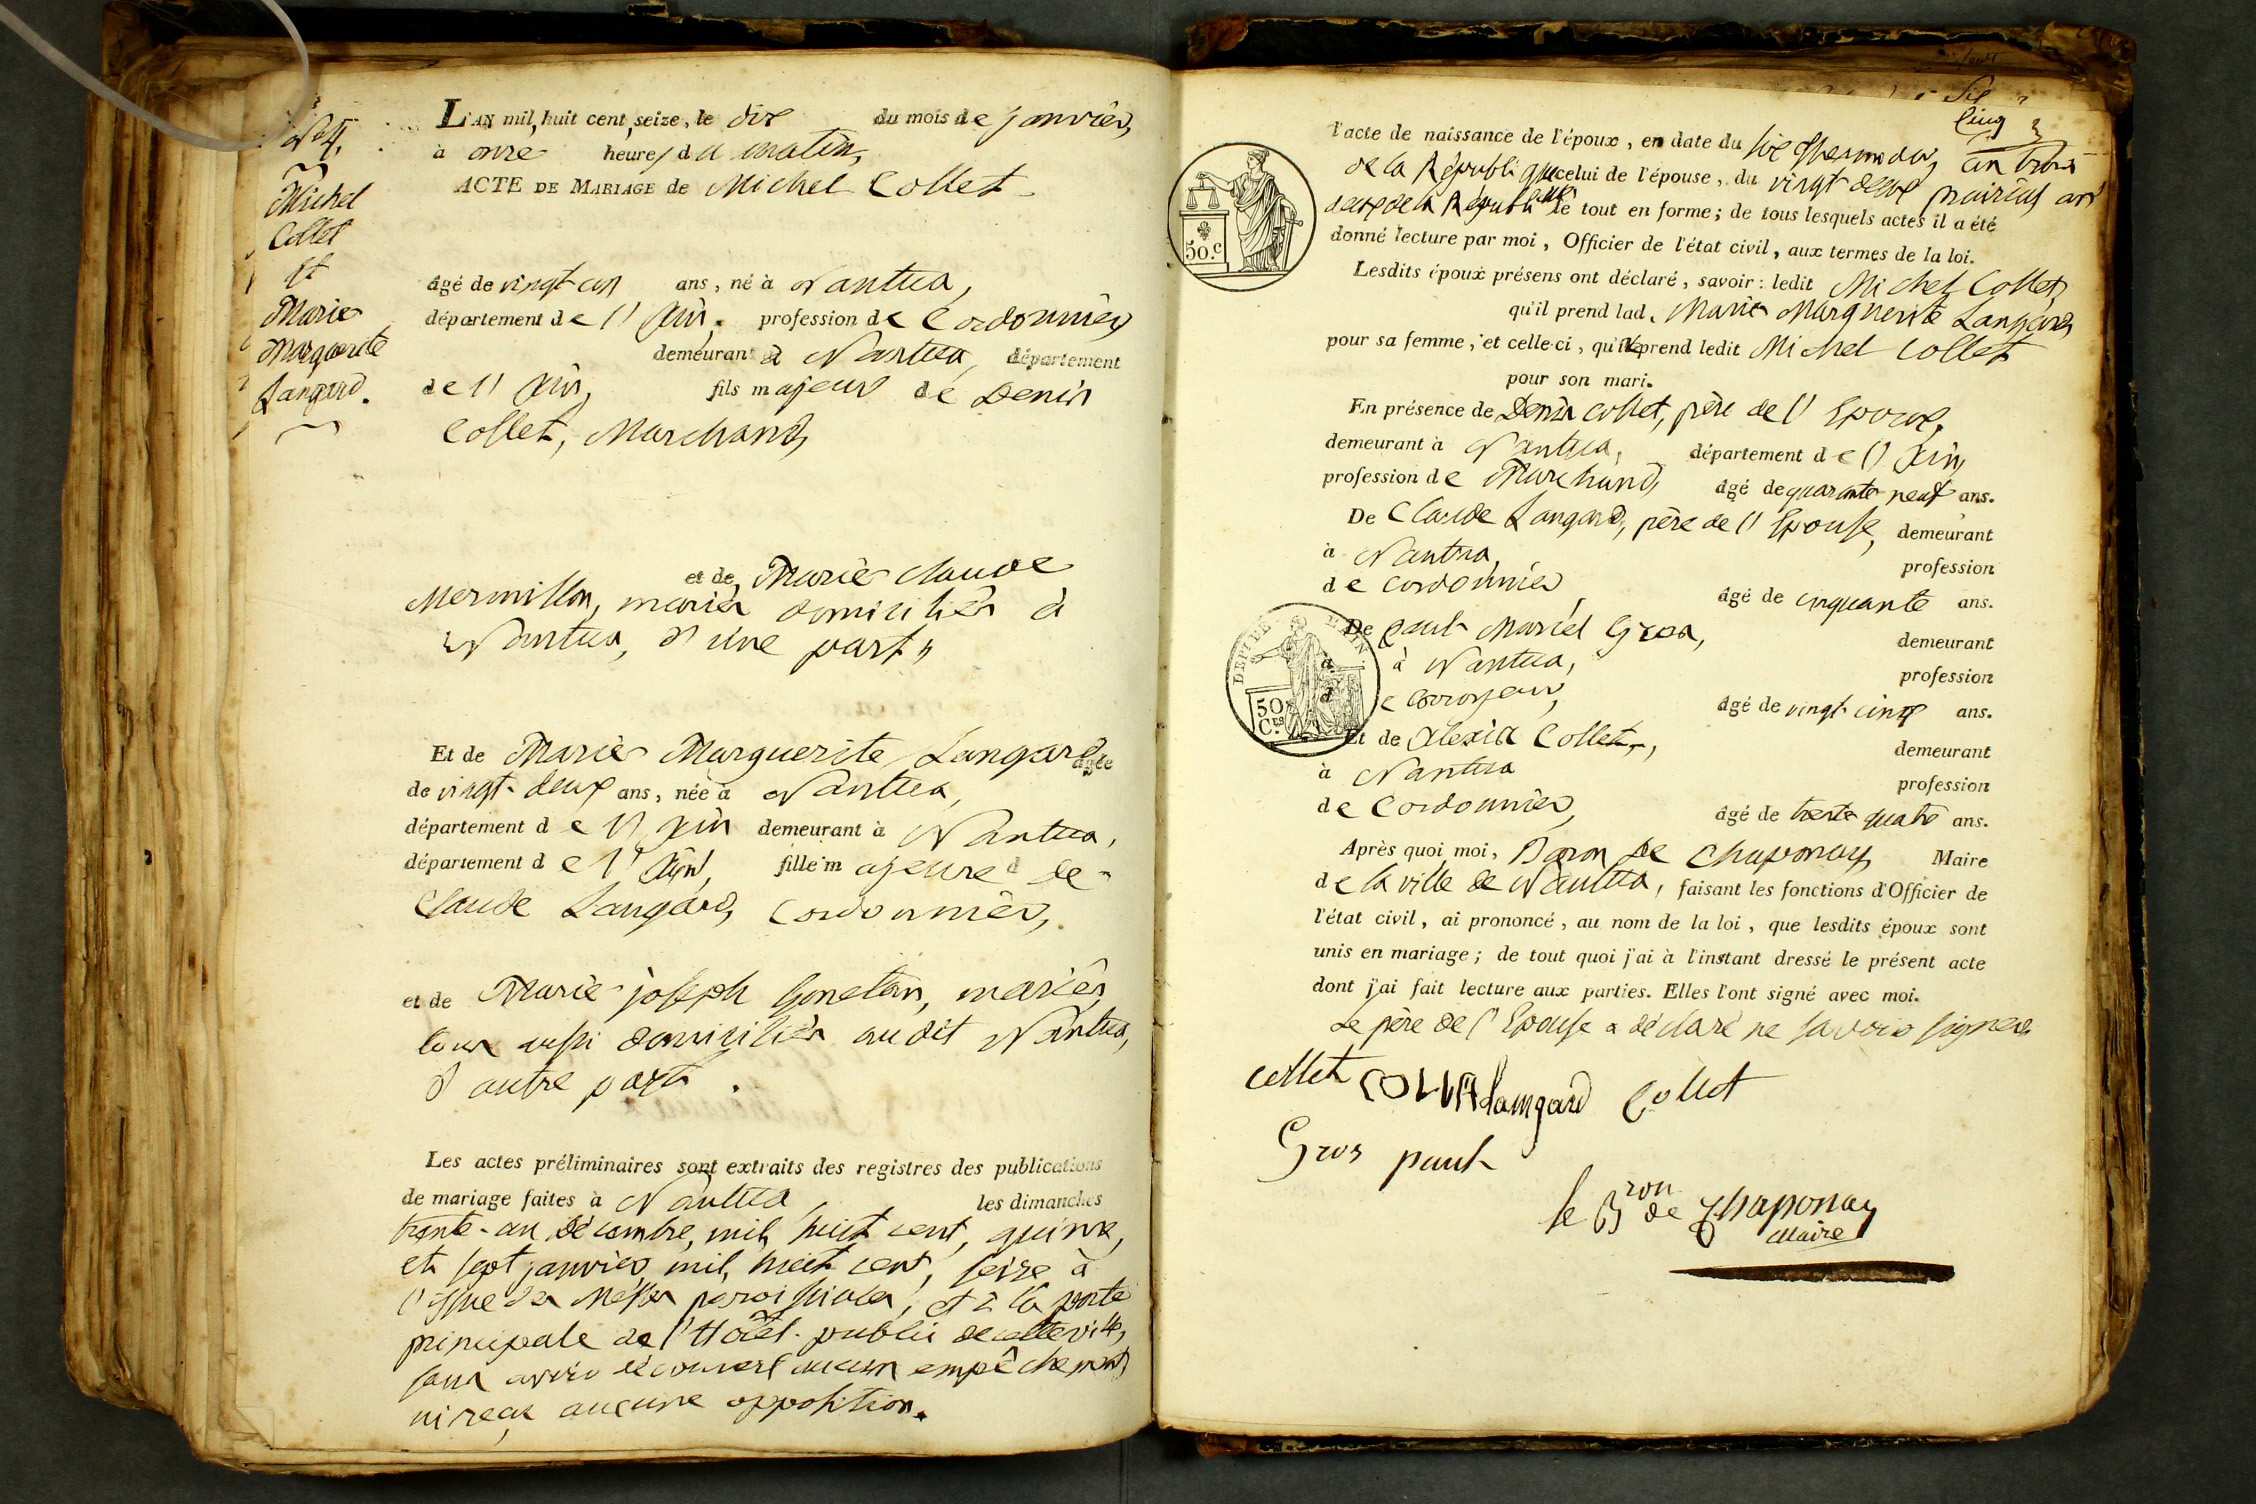 N.° 4.
Michel
Collet
et
Marie
Marguerite
Langard.
L'AN mil huit cent seize, le dix du mois de janvier,
à onze heures du matin,
ACTE DE MARIAGE de Michel Collet
âgé de vingt un ans, né à Nantua,
département de l'Ain, profession de Cordonnier
demeurant à Nantua, département
de l'Ain, fils majeur de Denis
Collet, Marchand,
et de Marie Claude
Mermillon, mariés domiciliés à
Nantua, d'une part,,
Et de Marie Marguerite Langard âgée
de vingt-deux ans, née à Nantua,
département de l'Ain demeurant à Nantua,
département de l'Ain, fille majeure d de
Claude Langard, Cordonnier,
et de Marie joseph Gonetan, mariés,
tous aussi domiciliés audit Nantua,
d'autre part.
Les actes préliminaires sont extraits des registres des publications
de mariage faites à Nantua, les dimanches
trente-un décembre, mil huit cent, quinze,
et sept janvier mil, huit cent, seize à
l'issue des Messes paroissiales, et à la porte
principale de l'Hôtel public de cette ville,
sans avoir découvert aucun empêchement
ni reçu aucune opposition.
Cinq
l'acte de naissance de l'époux, en date du six thermidor an trois
de la République celui de l'épouse, du vingt deux prairial an
deux de la République le tout en forme; de tous lesquels actes il a été
donné lecture par moi, Officier de l'état civil, aux termes de la loi.
Lesdits époux présens ont déclaré, savoir: ledit Michel Collet,
qu'il prend lad. Marie Marguerite Langard
pour sa femme, et celle-ci, qu'elle prend ledit Michel Collet
pour son mari.
En présence de Denis Collet, père de l'Epoux,
demeurant à Nantua, département de l'Ain,
profession de Marchand, âgé de quarante neuf ans.
De Claude Langard, père de l'Epouse, demeurant
à Nantua, profession
de cordonnier, âgé de cinquante ans.
De paul Mariel Gros, demeurant
à Nantua, profession
de corroyeur, âgé de vingt-cinq ans.
Et de Alexis Collet, demeurant
à Nantua profession
de Cordonnier, âgé de trente quatre ans.
Après quoi moi, Baron de Chaponay Maire
de la ville de Nantua, faisant les fonctions d'Officier de
l'état civil, ai prononcé, au nom de la loi, que lesdits époux sont
unis en mariage; de tout quoi j'ai à l'instant dressé le présent acte
dont j'ai fait lecture aux parties. Elles l'ont signé avec moi.
Le père de l'Epouse a déclaré ne savoir signer
collet Langard Collet
Gros paul
le Bron de Chaponay
Maire
50.c
50
Ces
DE L'AIN